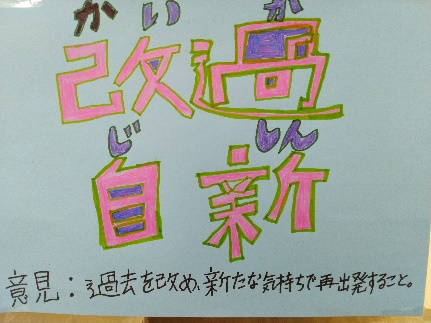 かいか
改過
じしん
自新
意見：過去を改め、新たな気持ちで再出発すること。